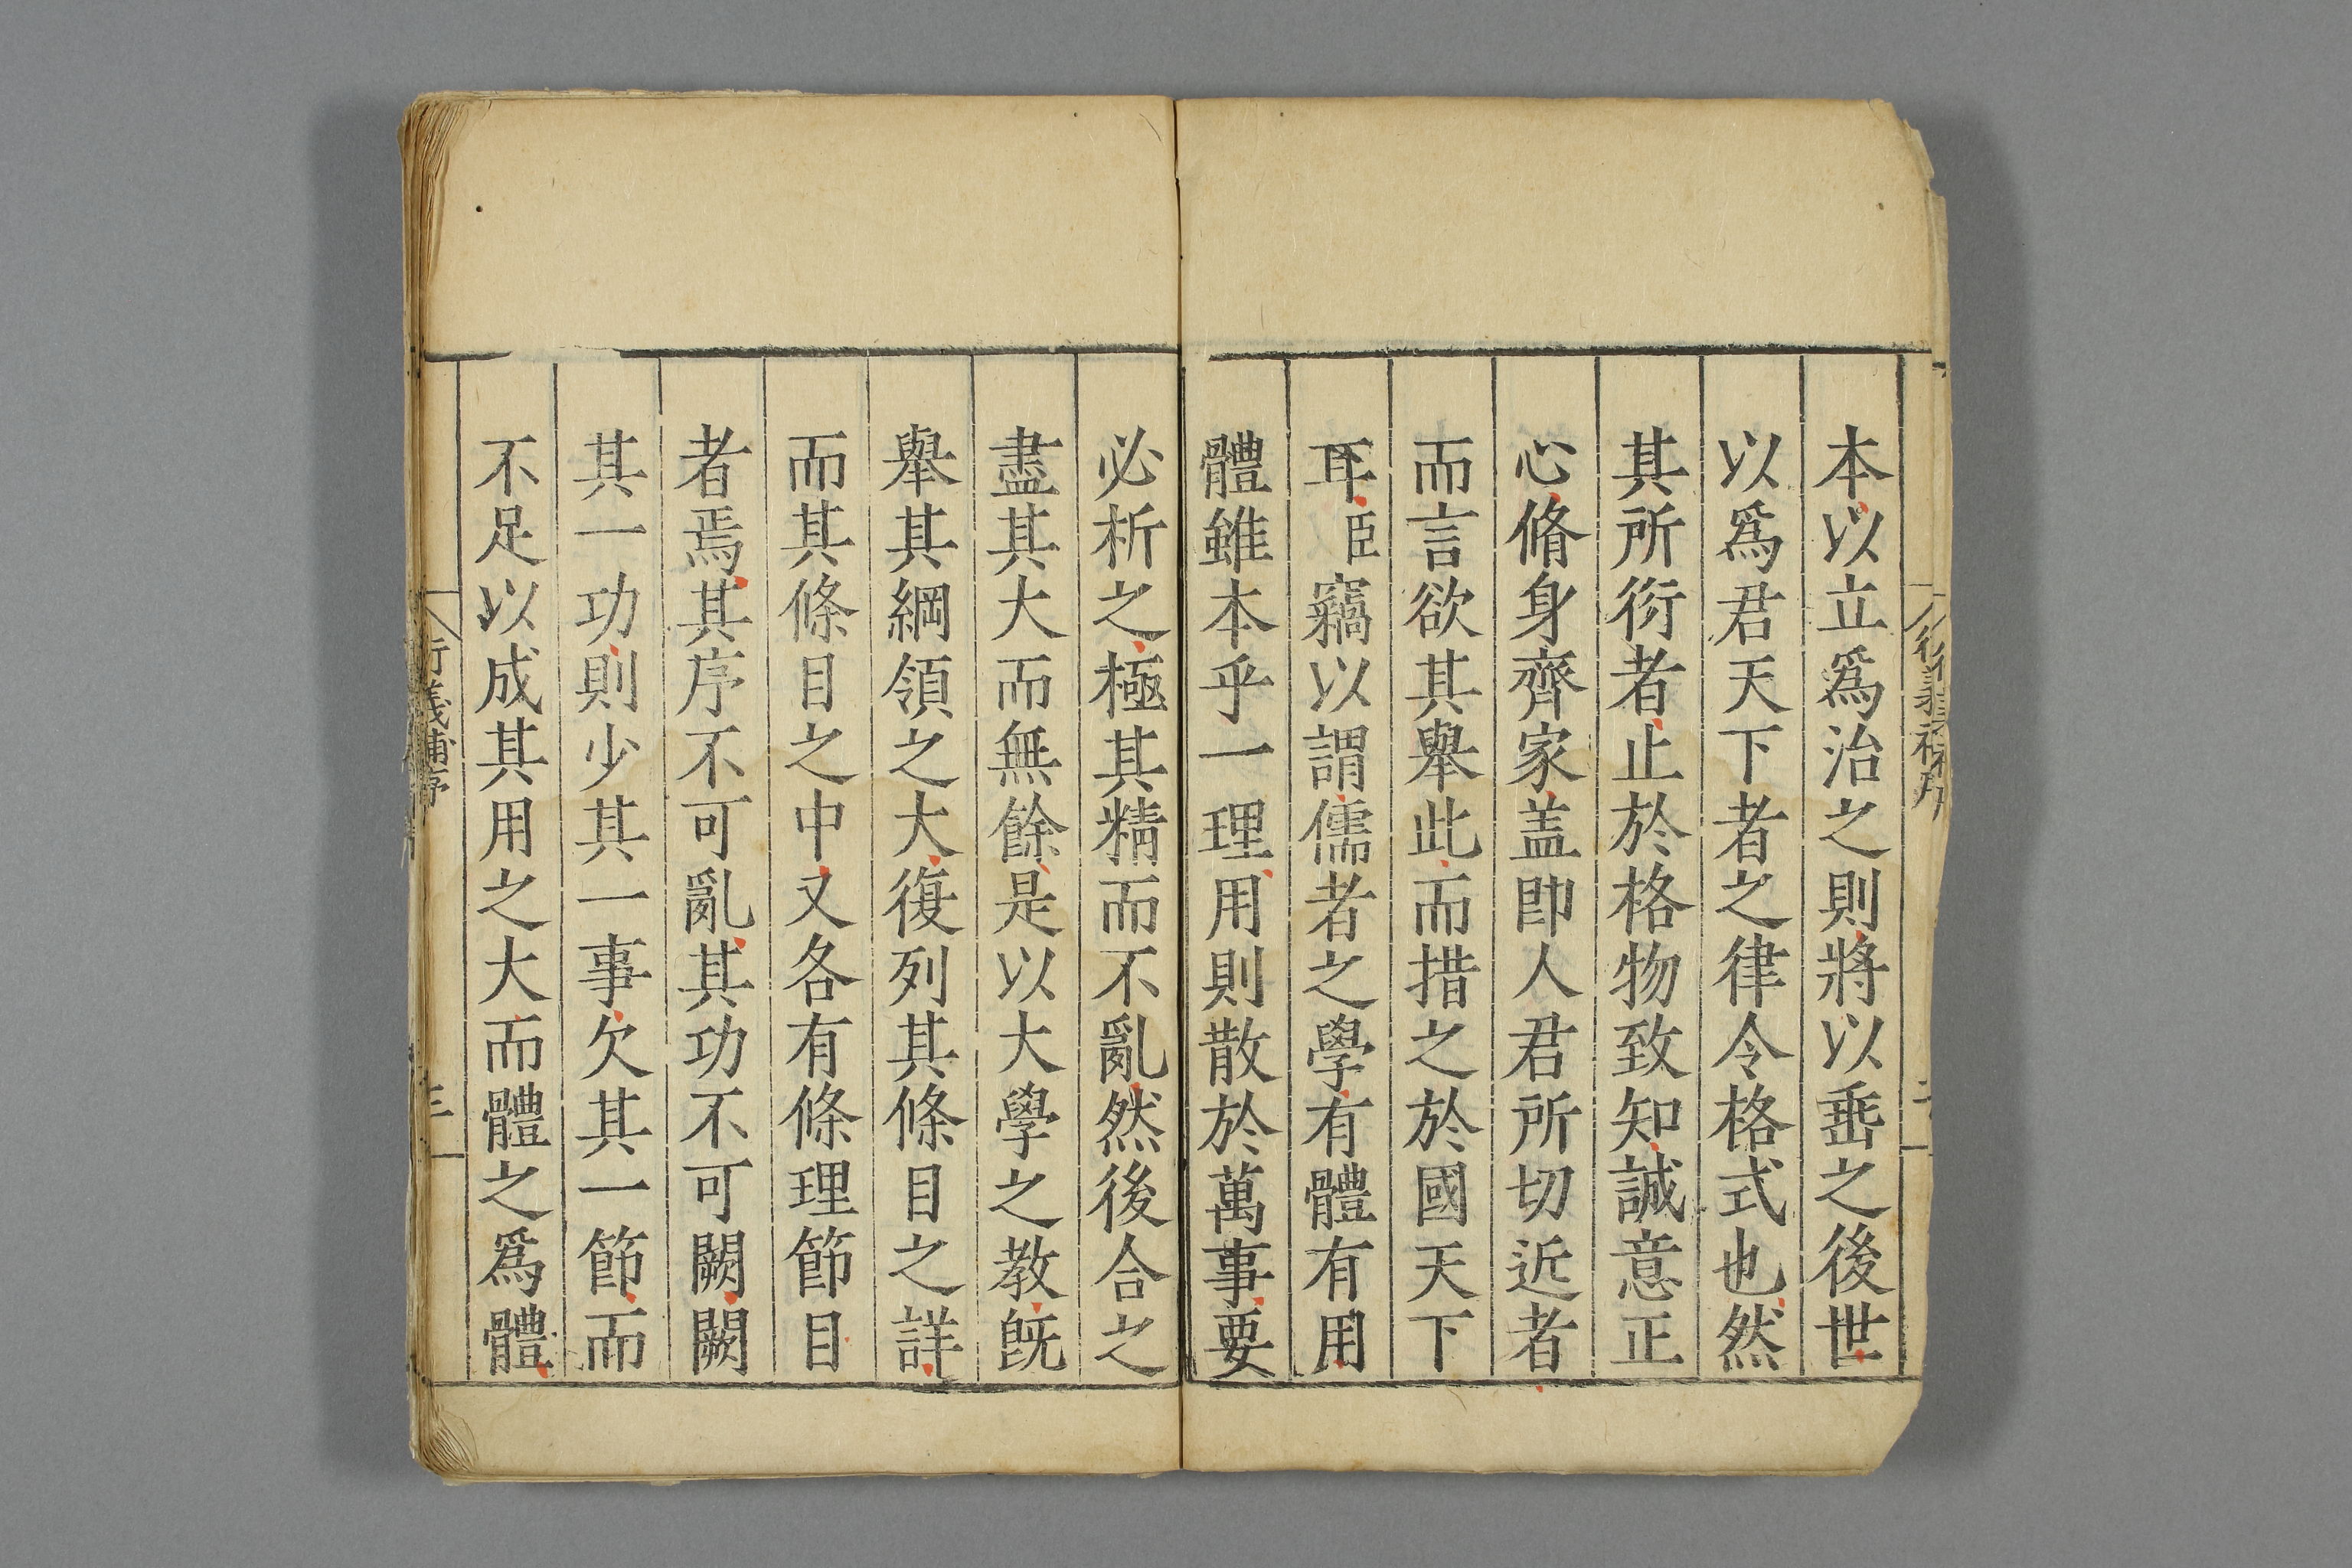 本以立爲治之則將以垂之後世
以爲君天下者之律令格式也然
其所衍者止於格物致知誠意正
心脩身齊家盖卽人君所切近者
而言欲其舉此而措之於國天下
耳臣竊以謂儒者之學有體有用
體雖本乎一理用則散於萬事要
必析之極其精而不亂然後合之
盡其大而無餘是以大學之教旣
舉其綱領之大復列其條目之詳
而其條目之中又各有條理節目
者焉其序不可亂其功不可闕闕
其一功則少其一事欠其一節而
不足以成其用之大而體之爲體
衍義補序
三